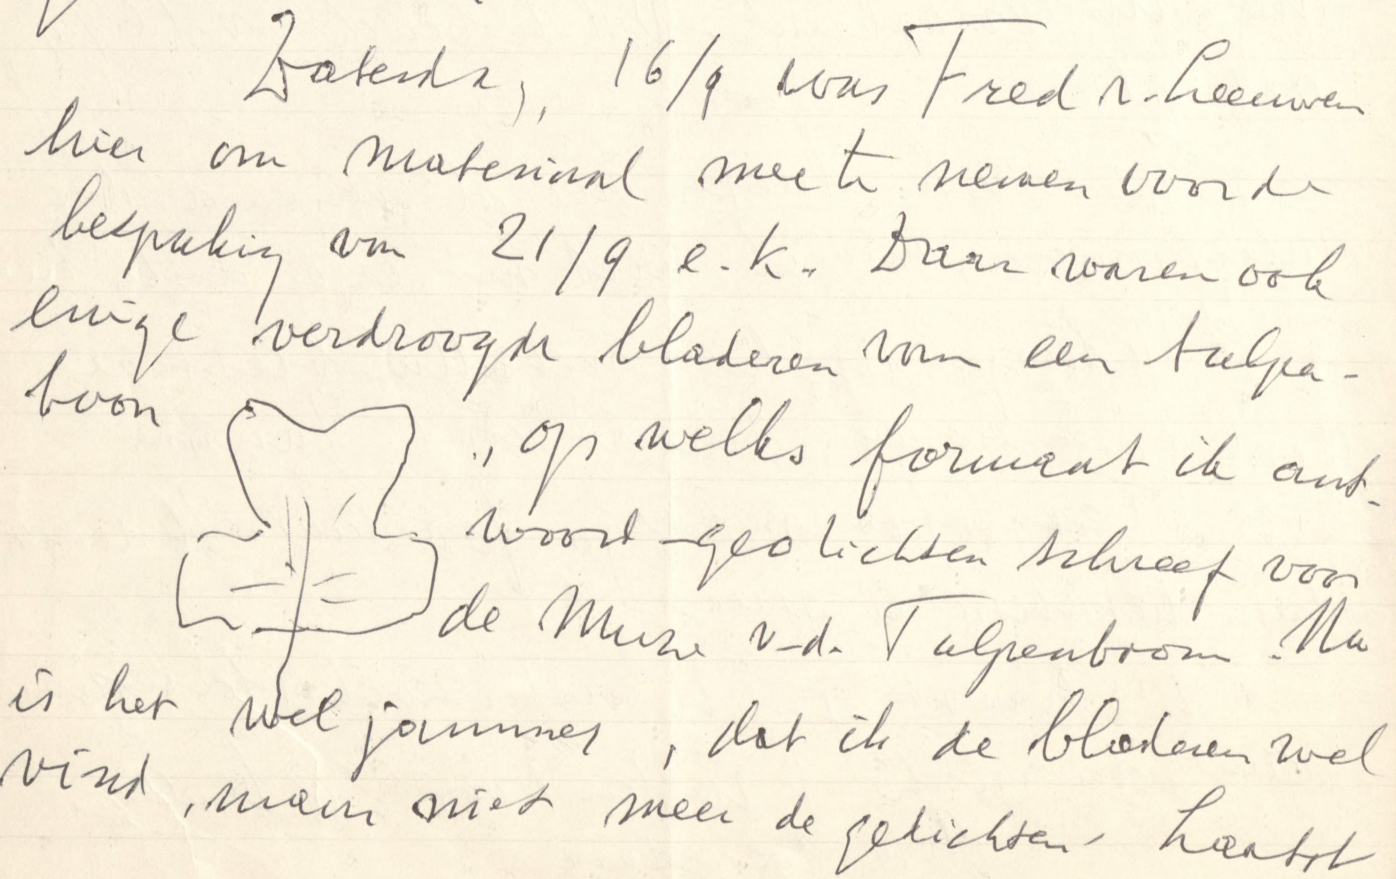 Zaterda, 16/9 was Fred v. Leeuwen
hier om materiaal mee te nemen voor de
bespreking van 21/9 e.k. Daar waren ook
enige verdroogde bladeren van een tulpe-
boom , op welks formaat ik ant-
woord-gedichten schreef voor
de Muze v.d. Tulpenboom. Nu
is het wel jammer, dat ik de bladeren wel
vind, maar niet meer de gedichten. Laatst